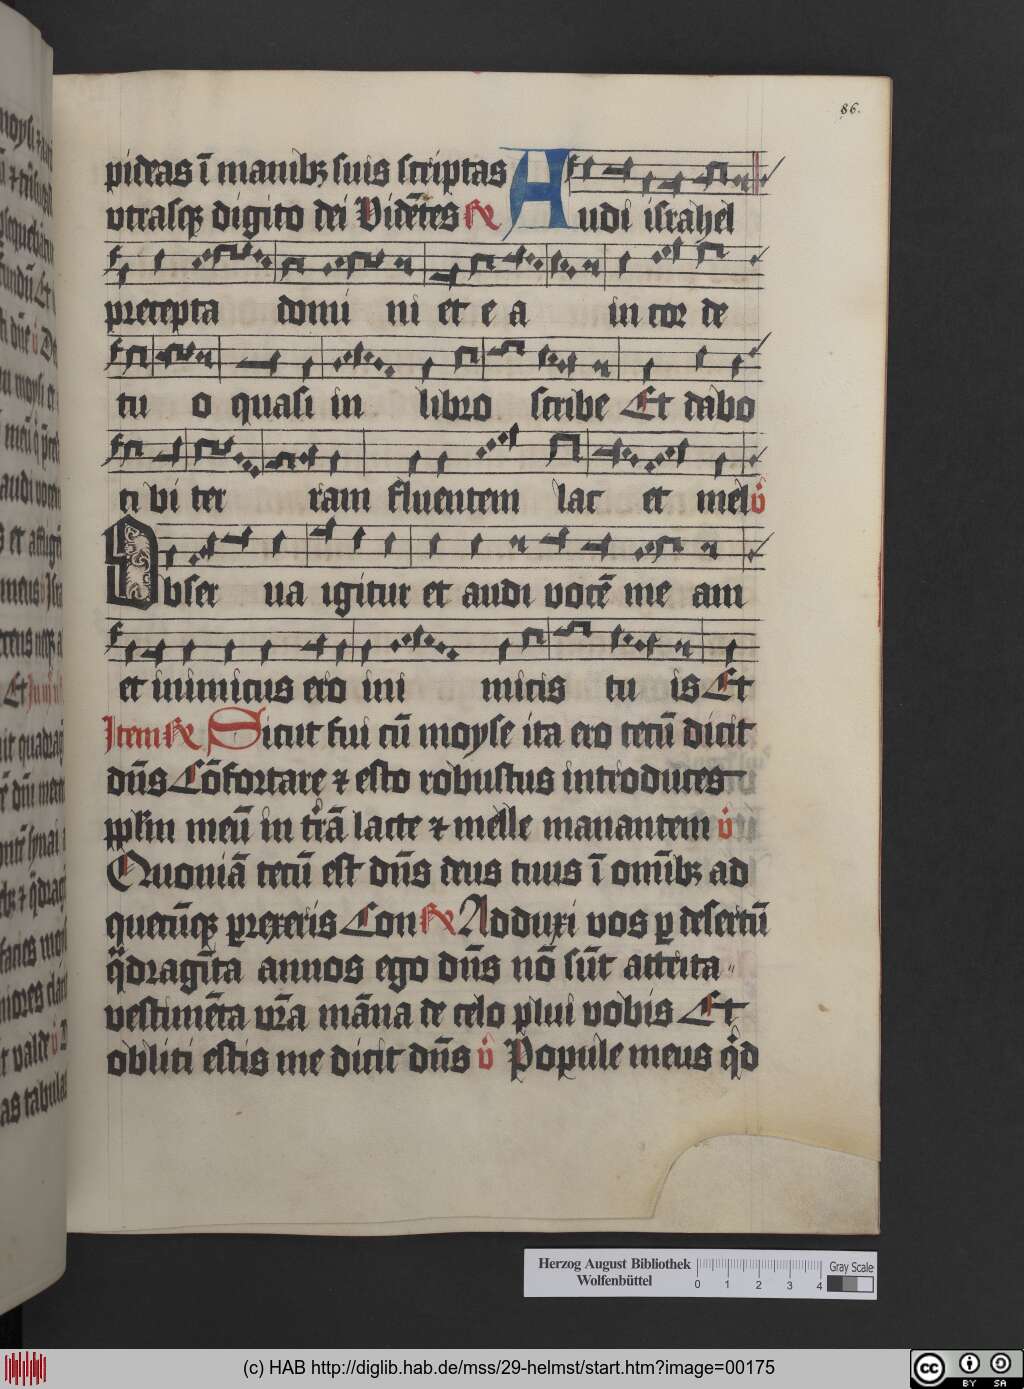 86.
pideas ī manibꝫ suis scriptas
vtrasqꝫ digito dei Vidētes ℟ Audi israhel
precepta domi ni et e a in cor de
tu o quasi in libro scribe Et dabo
ti bi ter ram fluentem lac et mel v̊
Obser ua igitur et audi vocē me am
et inimicus ero ini micis tu is Et
Item ℟ Sicut fui cū moyse ita ero tecū dicit
dn̄s Cōfortare ⁊ esto robustus introduces
pplm̄ meū in tr̄ā lacte ⁊ melle manantem v̊
Quoniā tecū est dn̄s deus tuus ī omībꝫ ad
quecūqꝫ ꝑrexeris Con ℟ Adduxi vos ꝑ desertū
q̈dragīta annos ego dn̄s nō sūt attrita
vestimēta vr̄a māna de celo plui vobis Et
obliti estis me dicit dn̄s v̊ Popule meus qͦd
Herzog August Bibliothek
Wolfenbüttel
0 1 2 3 4
Gray Scale
(c) HAB http://diglib.hab.de/mss/29-helmst/start.htm?image=00175
cc BY SA